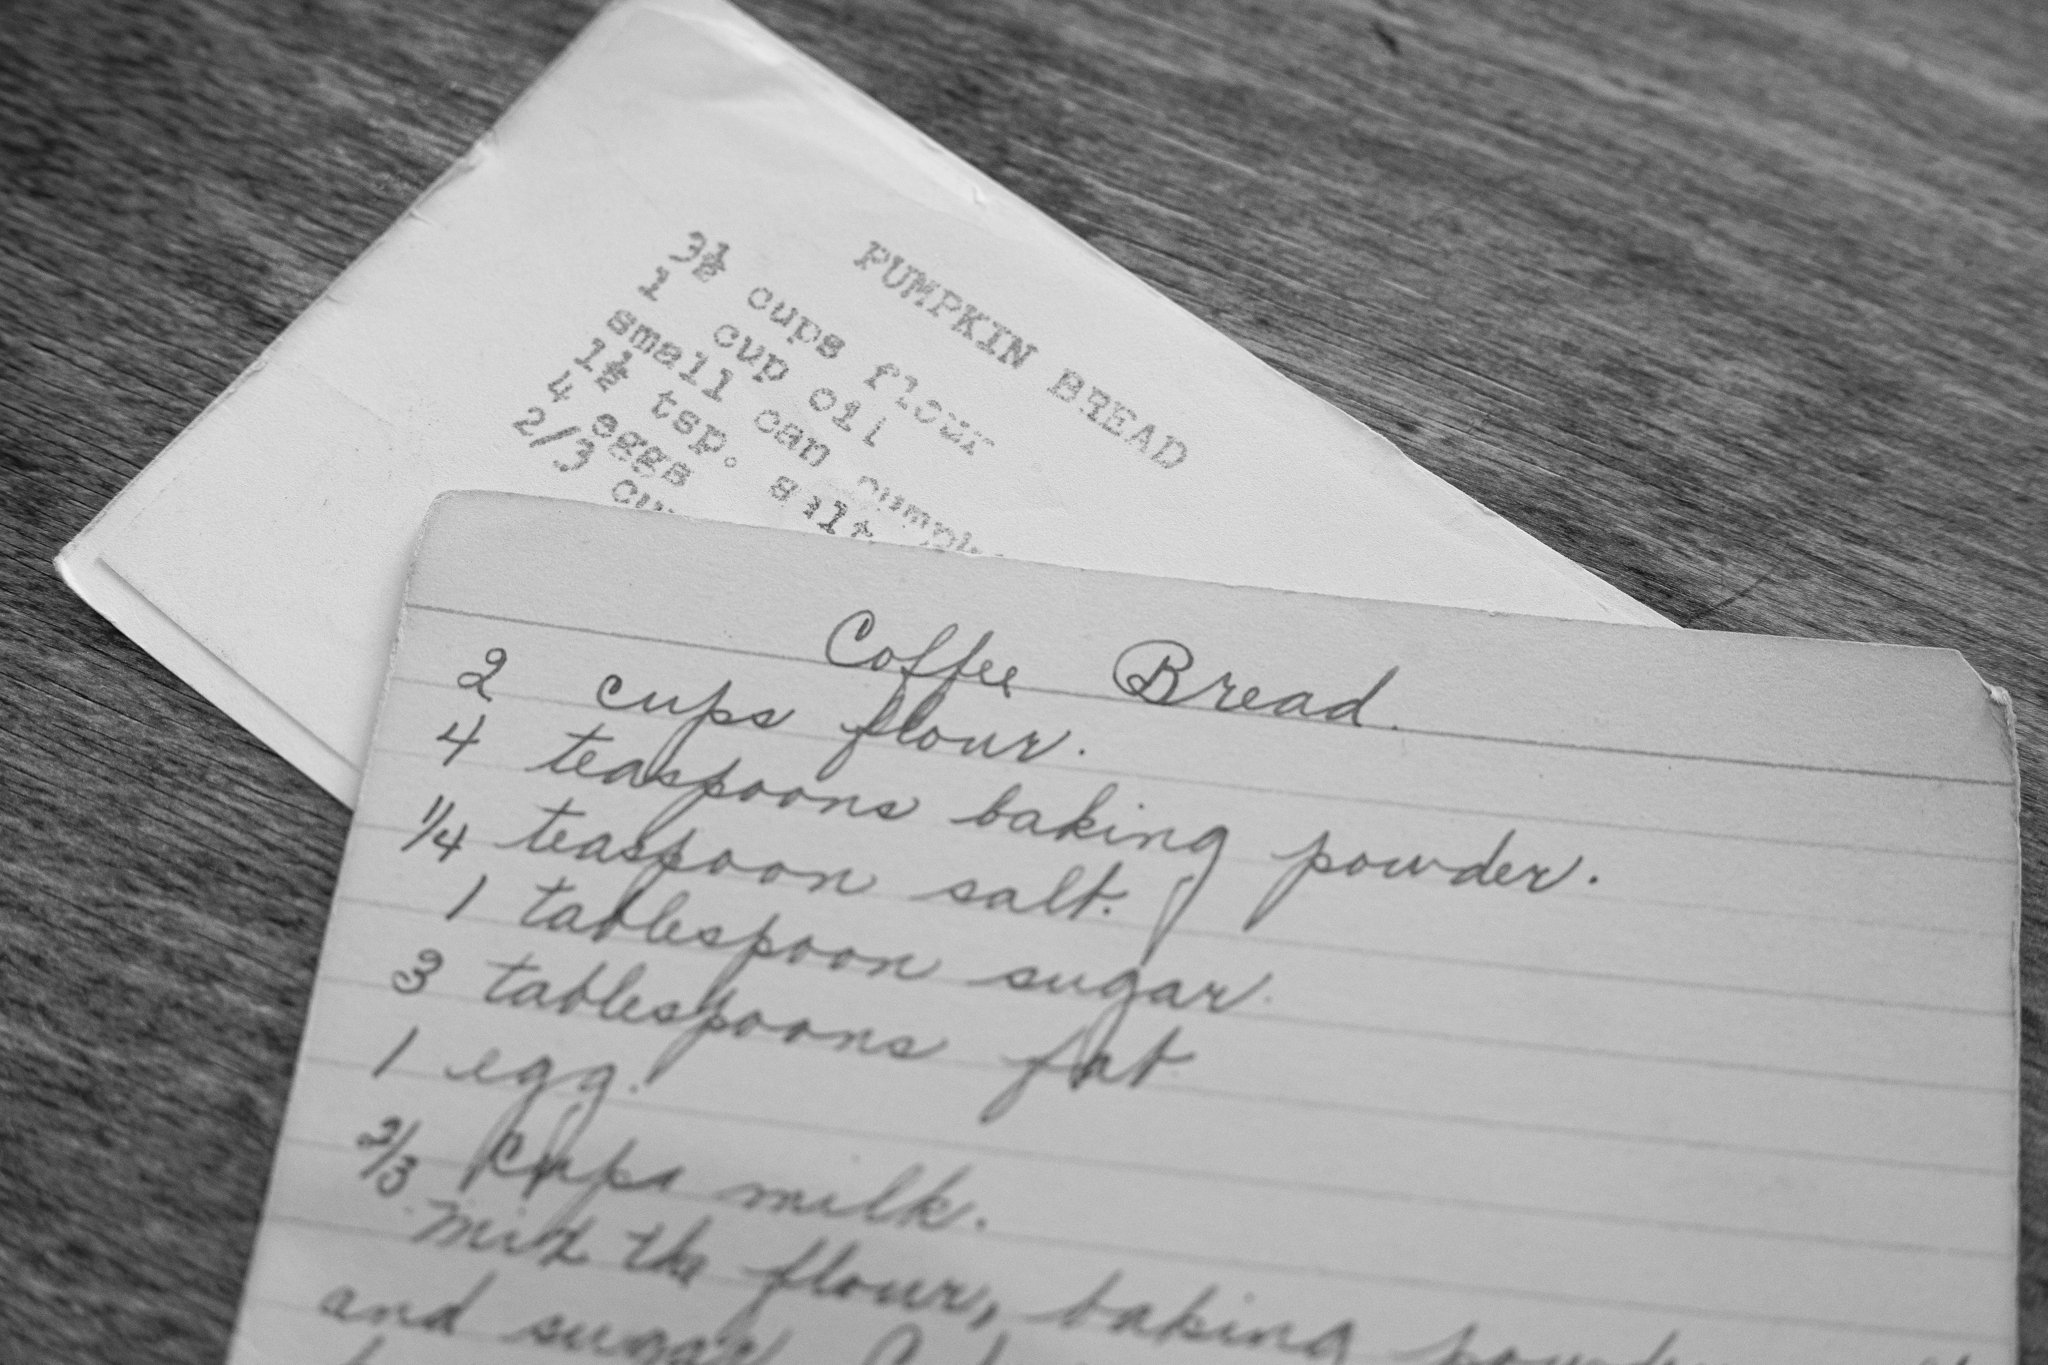 PUMPKIN BREAD
3½ cups flour
1 cup oil
small can
1½ tsp. salt
4 eggs
2/3
Coffee Bread.
2 cups flour.
4 teaspoons baking powder.
1/4 teaspoon salt.
1 tablespoon sugar.
3 tablespoons fat
1 egg.
2/3 cups milk.
Mix the flour, baking
and sugar.